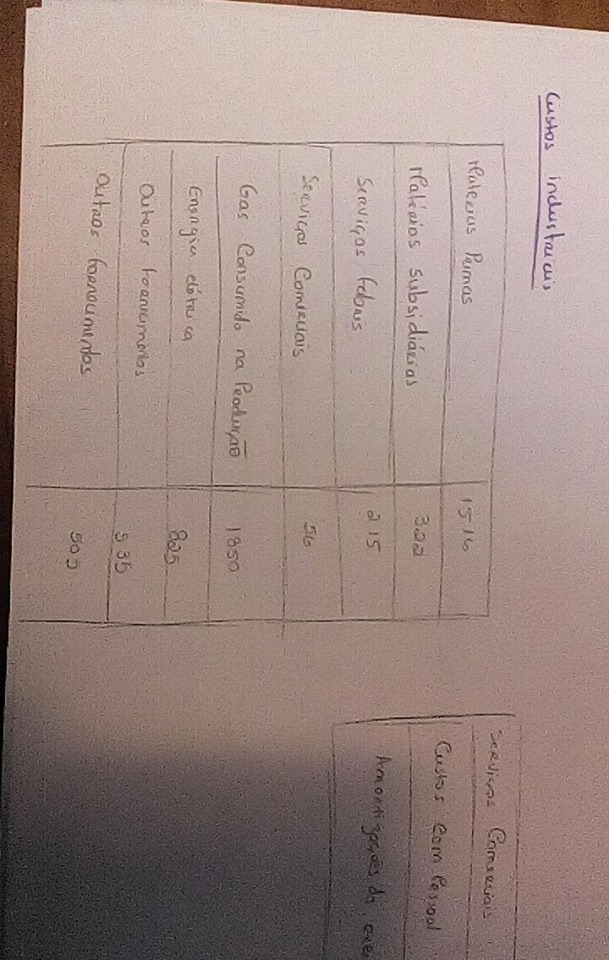 Custos industriais
Matérias Primas 1516
Matérias subsidiárias 322
Serviços fabris 215
Serviços Comerciais 56
Gas Consumido na Produção 1850
Energia elétrica 825
Outros fornecimentos 535
Outros fornecimentos 505
Serviços Comerciais
Custos com Pessoal
Amortizações do